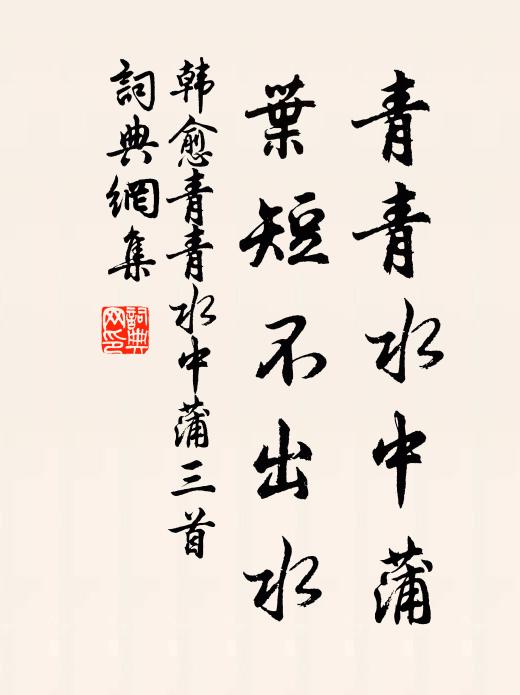 青青水中蒲
葉短不出水
韩愈青青水中蒲三首
詞典網集
詞典网印